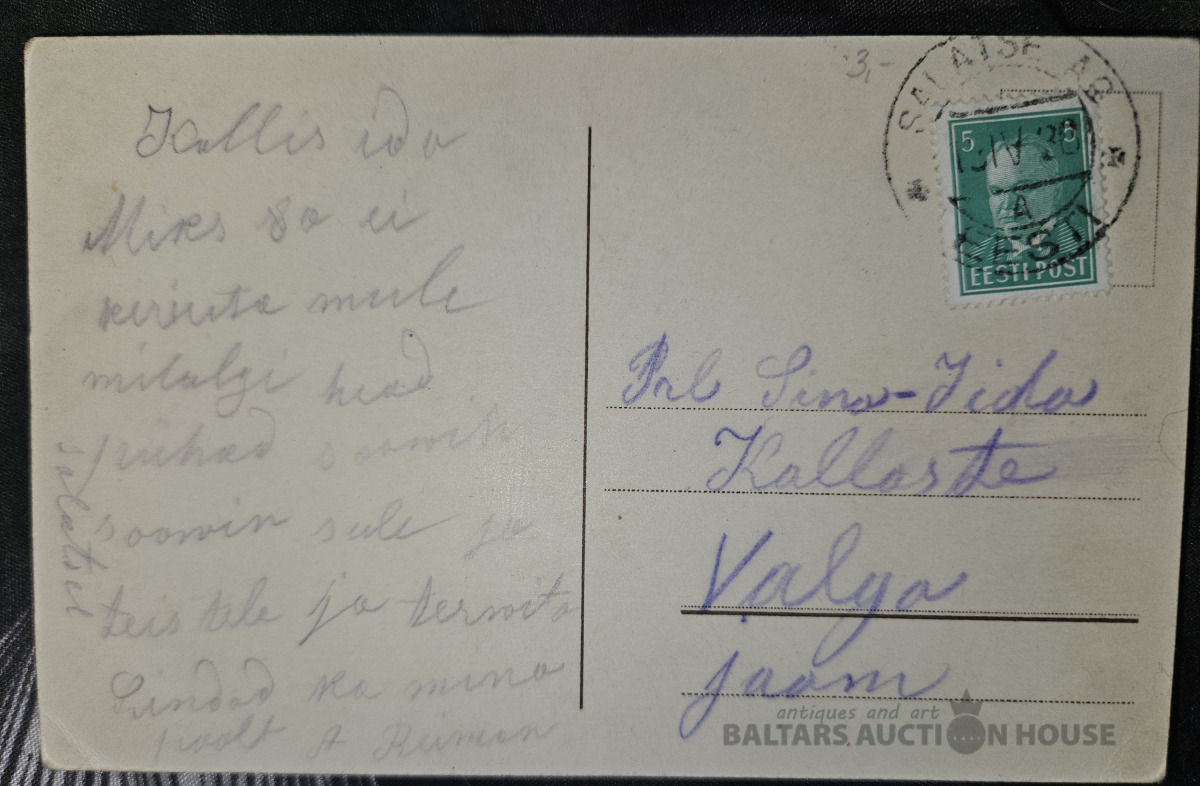 Kallis ida
Miks Sa ei
kirjuta mule
milalgi head
pühad soowin
soowin sule ja
teistele ja terwita
Lindad ka mino
poolt A Reiman
Salatsel
3,-
SALATSE AG
5 5
IV 38
A
EESTI
EESTI POST
Prl Sina-Iida
Kallaste
Valga
jaam
antiques and art
BALTARS AUCTION HOUSE